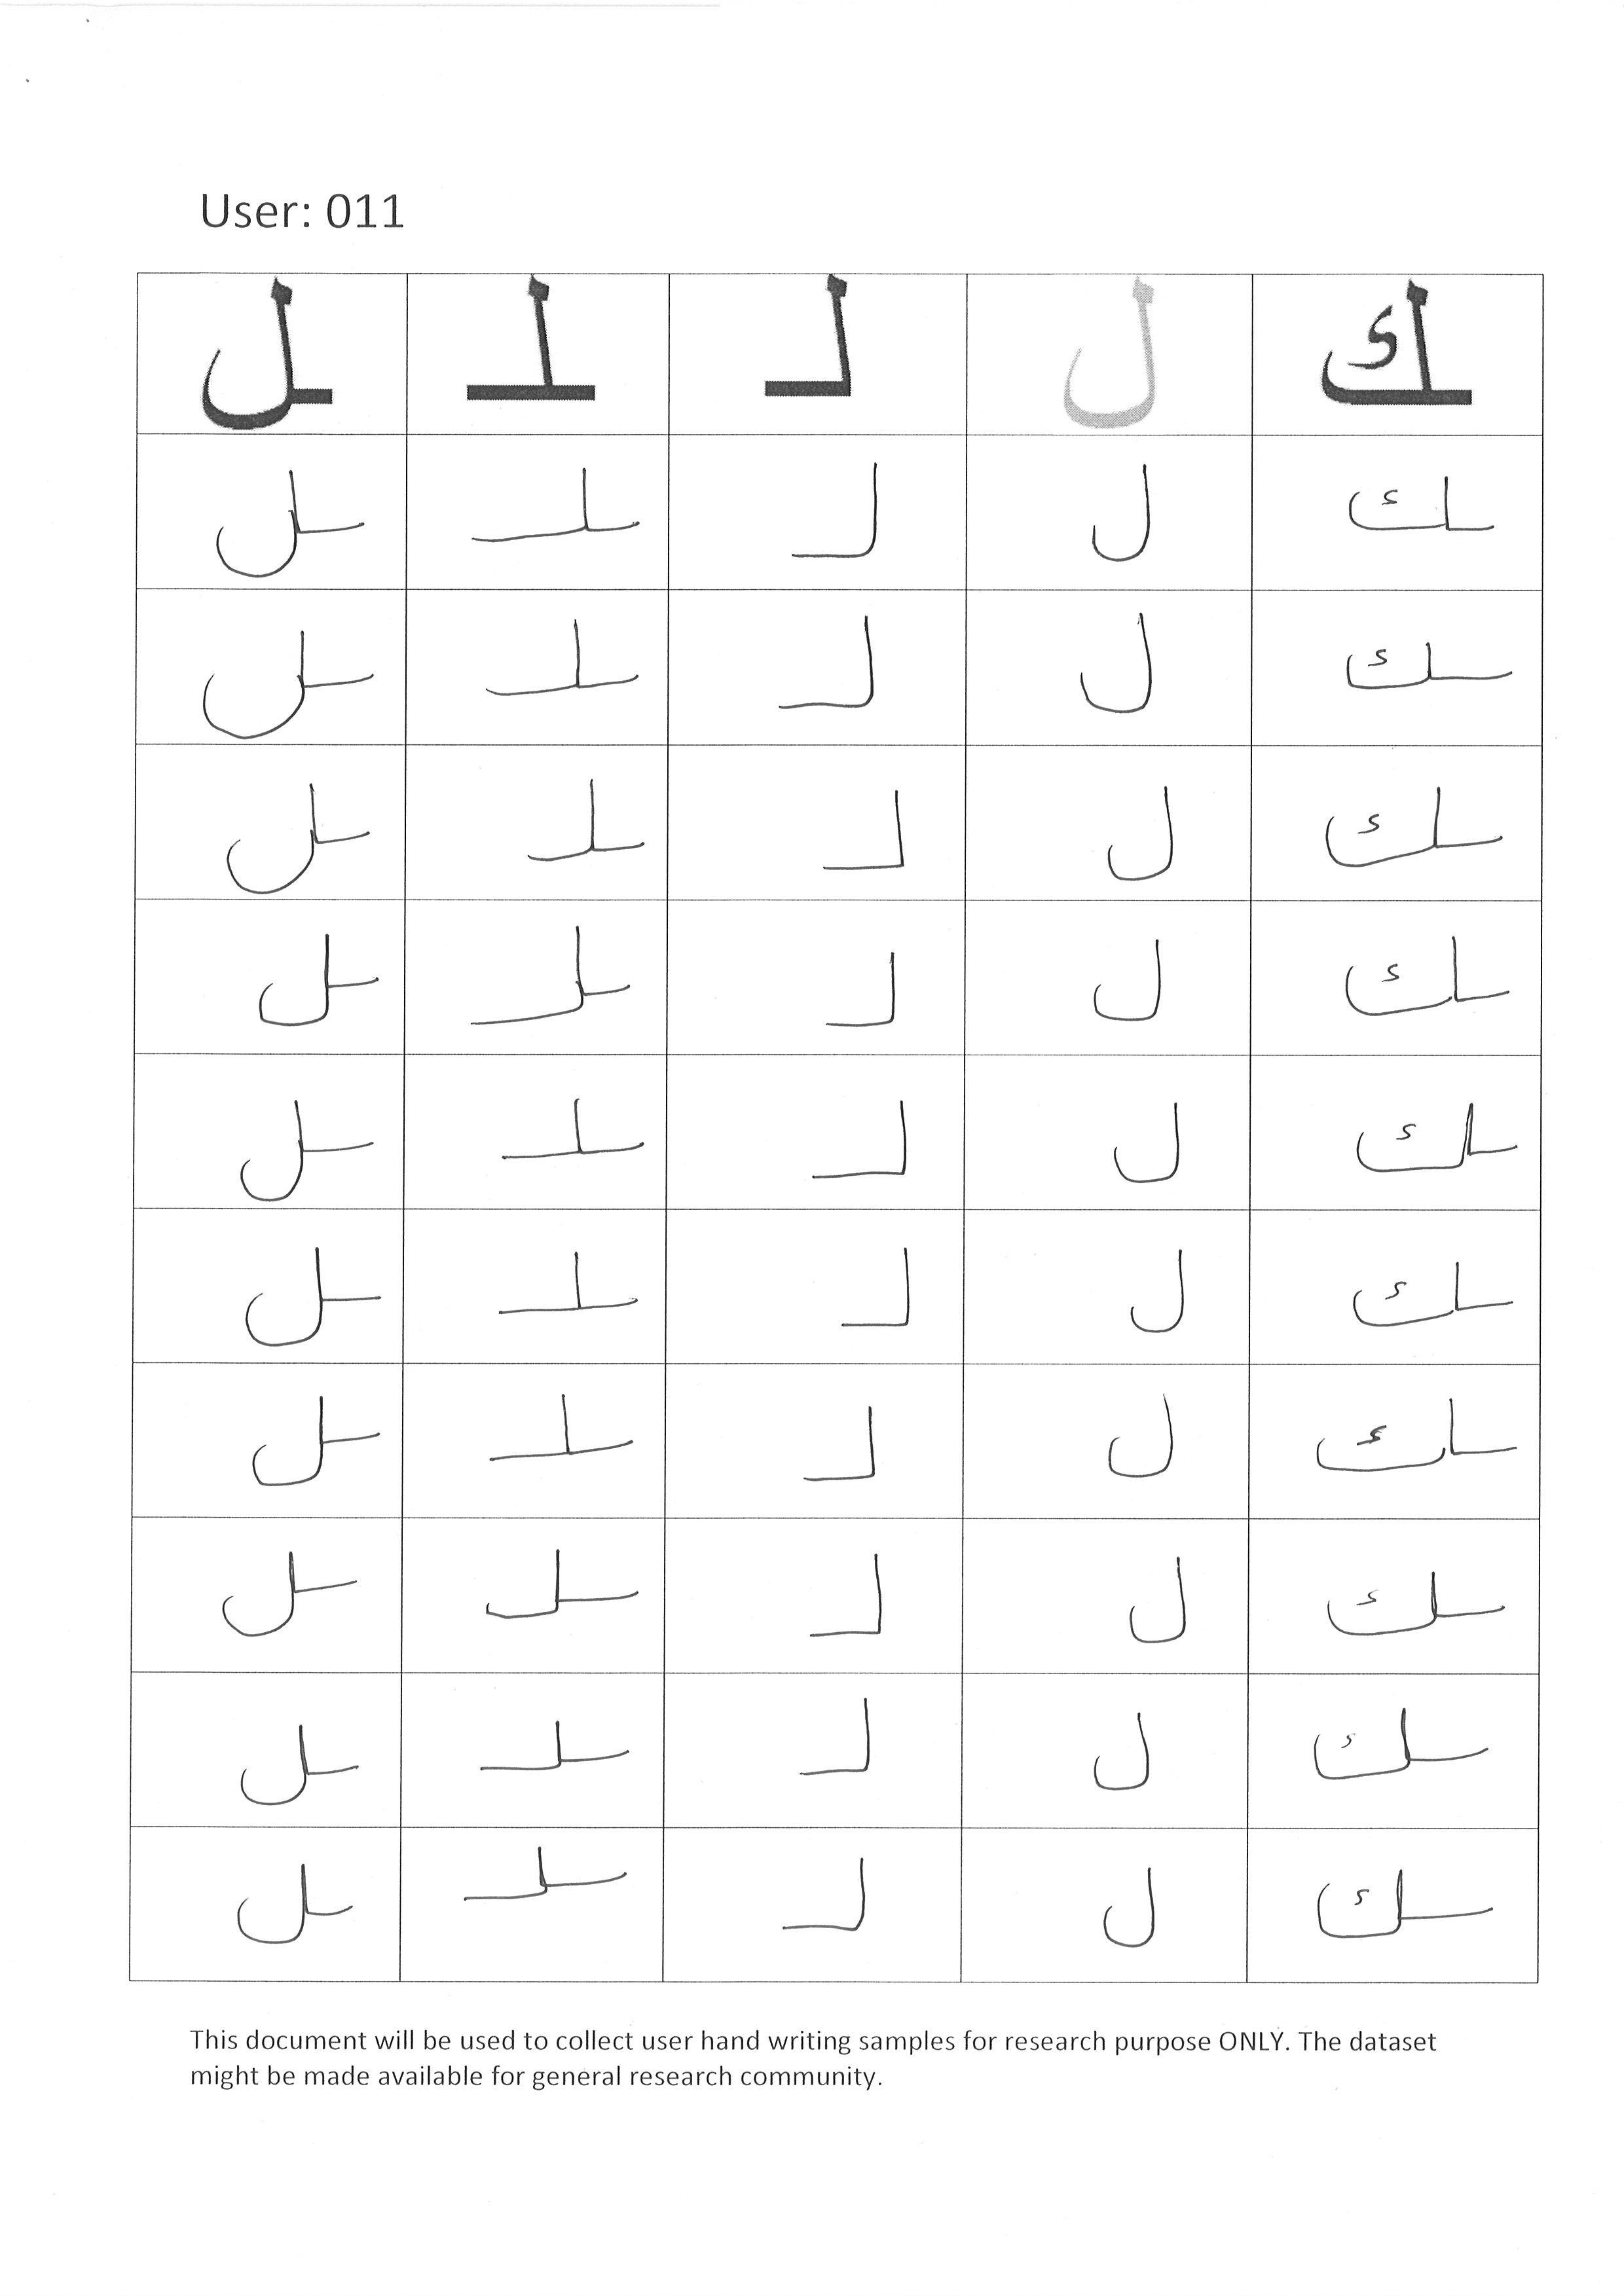 User: 011
ـل ـلـ لـ ل ـك
ـل ـلـ لـ ل ـك
ـل ـلـ لـ ل ـك
ـل ـلـ لـ ل ـك
ـل ـلـ لـ ل ـك
ـل ـلـ لـ ل ـك
ـل ـلـ لـ ل ـك
ـل ـلـ لـ ل ـك
ـل ـلـ لـ ل ـك
ـل ـلـ لـ ل ـك
ـل ـلـ لـ ل ـك
This document will be used to collect user hand writing samples for research purpose ONLY. The dataset
might be made available for general research community.